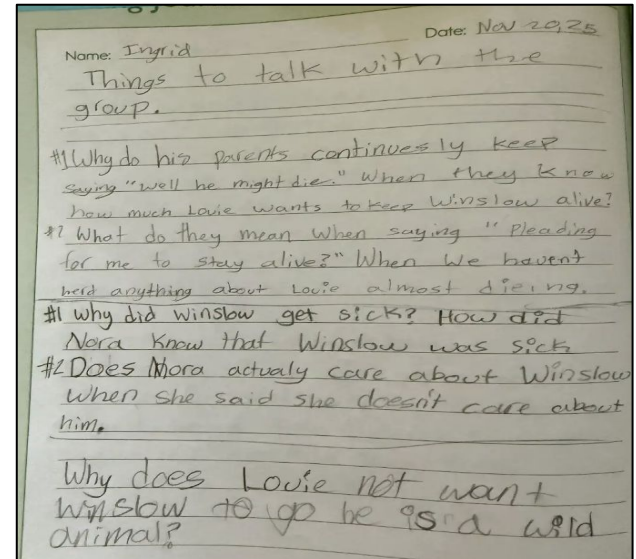 Date: Nov 20, 25
Name: Ingrid
Things to talk with the
group.
#1 Why do his parents continuesly keep
saying "well he might die." When they know
how much Louie wants to keep Winslow alive?
#2 What do they mean when saying "Pleading
for me to stay alive?" When we havent
herd anything about Louie almost dieing.
#1 Why did Winslow get sick? How did
Nora know that Winslow was sick
#2 Does Nora actualy care about Winslow
when she said she doesn't care about
him.
Why does Louie not want
Winslow to go he is a wild
animal?